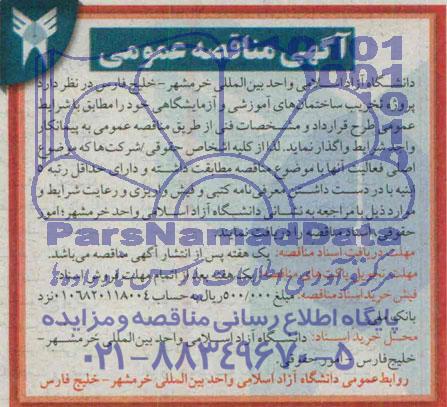 آگهی مناقصه عمومی
دانشگاه آزاد اسلامی واحد بین‌المللی خرمشهر – خلیج فارس در نظر دارد
پروژه تخریب ساختمان‌های آموزشی و آزمایشگاهی خود را مطابق با شرایط
عمومی طرح قرارداد و مشخصات فنی از طریق مناقصه عمومی به پیمانکار
واجد شرایط واگذار نماید. لذا از کلیه اشخاص حقوقی/شرکت‌ها که موضوع
اصلی فعالیت آنها با موضوع مناقصه مطابقت داشته و دارای حداقل رتبه ۵
ابنیه با در دست داشتن معرفی‌نامه کتبی و فیش واریزی و رعایت شرایط و
موارد ذیل با مراجعه به نشانی دانشگاه آزاد اسلامی واحد خرمشهر؛ امور
حقوقی، اسناد مناقصه را دریافت نمایند.
ParsNamadData
مهلت دریافت اسناد مناقصه: یک هفته پس از انتشار آگهی مناقصه می‌باشد.
مهلت تحویل پاکت‌های مناقصه: یک هفته بعد از اتمام مهلت فروش اسناد
فیش خرید اسناد مناقصه: مبلغ ۵۰۰/۰۰۰ ریال به حساب ۰۱۰۶۸۲۰۱۱۸۰۰۴ نزد
بانک ملی
پایگاه اطلاع رسانی مناقصه و مزایده
محل خرید اسناد: دانشگاه آزاد اسلامی واحد بین‌المللی خرمشهر –
خلیج فارس – امور حقوقی
۰۲۱-۸۸۳۴۹۶۷۰-۵
روابط عمومی دانشگاه آزاد اسلامی واحد بین‌المللی خرمشهر – خلیج فارس